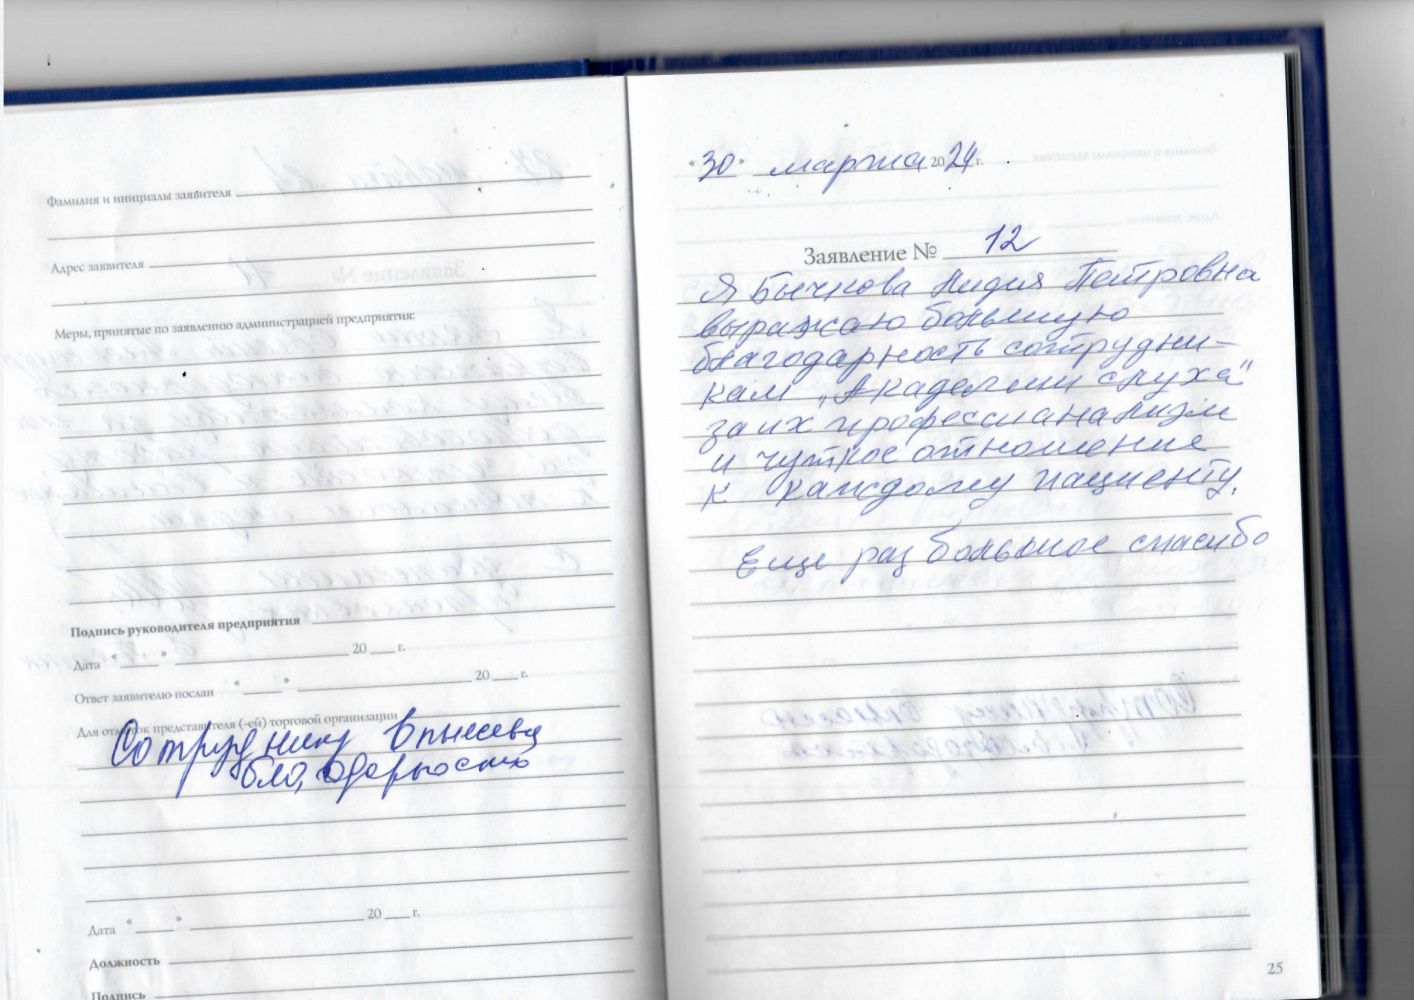 Фамилия и инициалы заявителя
Адрес заявителя
Меры, принятые по заявлению администрацией предприятия:
Подпись руководителя предприятия
Дата « » 20 г.
Ответ заявителю послан « » 20 г.
Для отметок представителя (-ей) торговой организации
Сотруднику
благодарность
Дата « » 20 г.
Должность
Подпись
«30» марта 2024 г.
Заявление № 12
Я Бычкова Лидия Петровна
выражаю большую
благодарность сотрудни-
кам „Академии слуха"
за их профессианализм
и чуткое отношение
к каждому пациенту.
Еще раз большое спасибо
25